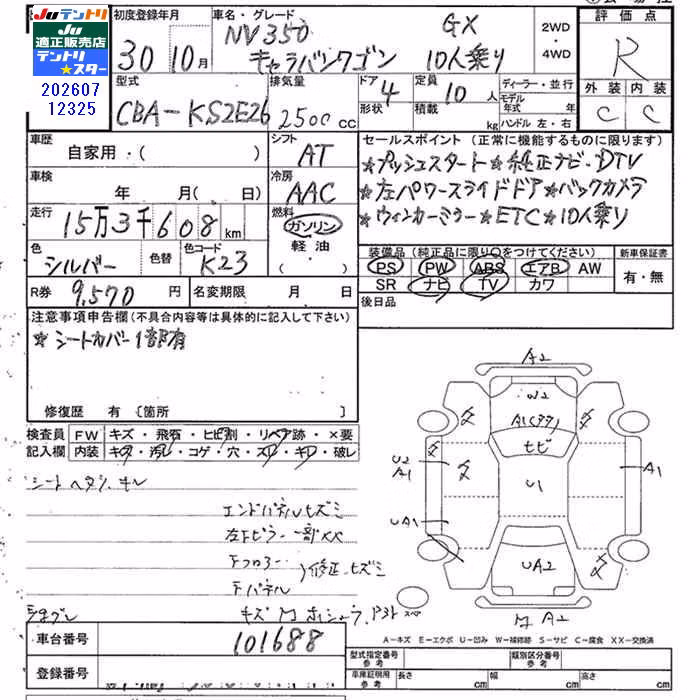 JUテントリ JUテントリ
適正販売店
テントリ
★スター
202607
12325
初度登録年月
30 10月
車名・グレード
NV350 GX
キャラバンワゴン 10人乗り
2WD
・
4WD
評価点
R
外装 内装
C C
型式
CBA-KS2E26
排気量
2500 cc
ドア 4
形状
定員 10 人
積載 kg
ディーラー・並行
モデル年式 年
ハンドル 左・右
車歴
自家用・( )
シフト
AT
車検
年 月( 日)
冷房
AAC
走行
15万3千608km
燃料
ガソリン
軽油・
( )
色
シルバー
色替
色コード
K23
セールスポイント (正常に機能するものに限ります)
★プッシュスタート★純正ナビ・DTV
★左パワースライドドア★バックカメラ
★ウィンカーミラー★ETC★10人乗り
装備品 (純正品に限り○をつけてください)
PS PW ABS エアB AW
SR ナビ TV カワ
新車保証書
有・無
後日品
R券 9,570 円
名変期限 月 日
注意事項申告欄(不具合内容等は具体的に記入して下さい)
★シートカバー1部有
修復歴 有 [箇所 ]
検査員
記入欄
FW キズ・飛石・ヒビ割・リペア跡・×要
内装 キズ・汚れ・コゲ・穴・スレ・キレ・破レ
シートヘタリ、キレ
エンドパネルヒズミ
左Fピラー一部××
Fフロアー
Fパネル
修正、ヒズミ
キズ
A2
U2
A1
ヒビ
U1
U2
A1
UA1
A1
UA2
A2
スペア
A-キズ E-エクボ U-凹み W-補修跡 S-サビ C-腐食 XX-交換済
車台番号
101688
登録番号
型式指定番号
参考
類別区分番号
参考
車庫証明用
参考
長さ cm
幅 cm
高さ cm